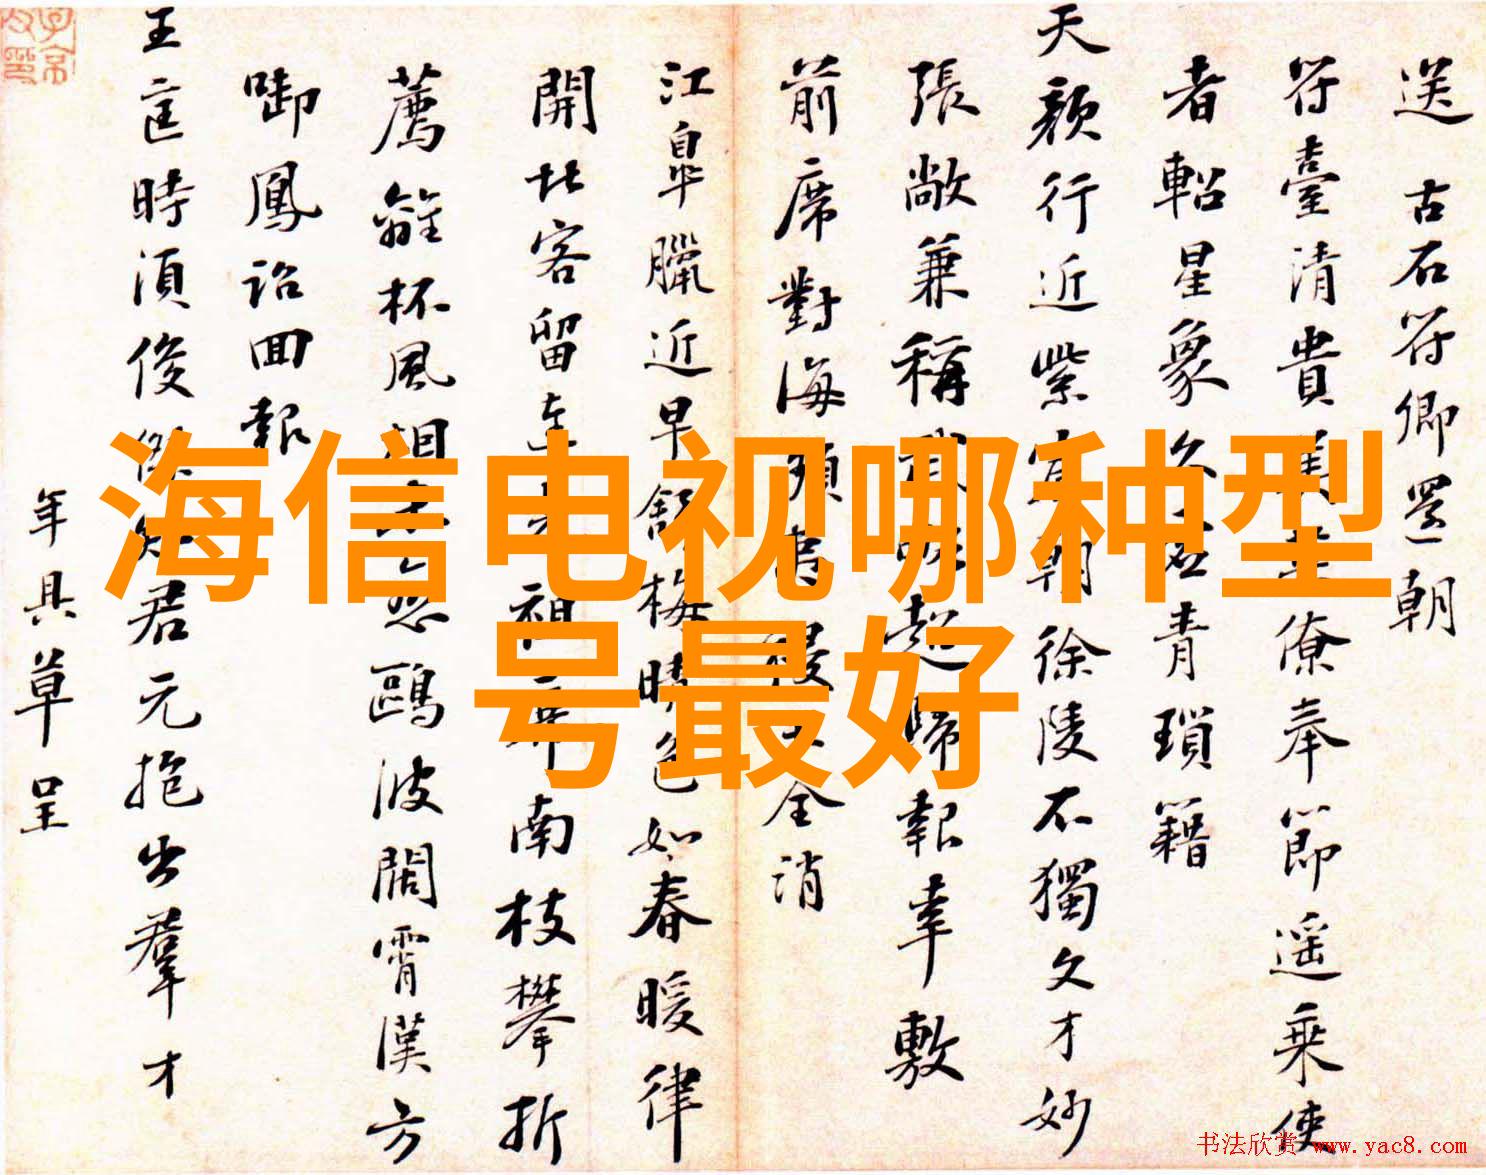 海信电视哪种型
号最好
送 古石符卿還朝
符臺清貴僚奉節遥乘使
者軺星象青瑣籍
天顔行近紫朝徐陵不獨文才妙
張敞兼稱超歸報幸敷
前席對海全消
江皐臘近早舒梅晴色如春暖律
開北客留南枝攀折
薦離杯風鷗波闊霄漢方
啣鳳詔回報
王匡時須俊傑知君元抱出羣才
年具草呈
书法欣赏 www.yac8.com